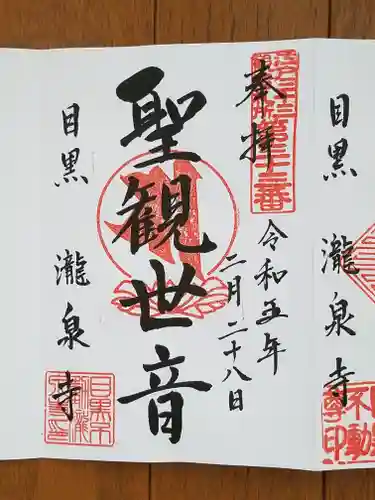 目黒 瀧泉寺
奉拝
令和五年
二月二十八日
聖観世音
目黒 瀧泉寺
第三十三番